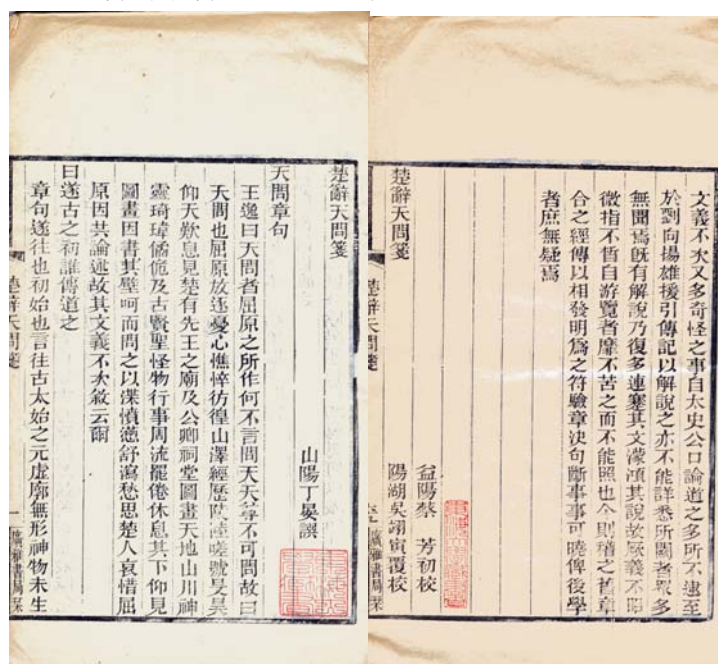 楚辭天問箋
山陽丁晏譔
天問章句
王逸曰天問者屈原之所作何不言問天天尊不可問故曰
天問也屈原放逐憂心憔悴彷徨山澤經歷陵陸嗟號旻昊
仰天歎息見楚有先王之廟及公卿祠堂圖畫天地山川神
靈琦瑋僪佹及古賢聖怪物行事周流罷倦休息其下仰見
圖畫因書其壁呵而問之以渫憤懣舒瀉愁思楚人哀惜屈
原因共論述故其文義不次敘云爾
曰遂古之初誰傳道之
章句遂往也初始也言往古太始之元虛廓無形神物未生
楚辭天問箋 一 廣雅書局栞
文義不次又多奇怪之事自太史公口論道之多所不逮至
於劉向揚雄援引傳記以解說之亦不能詳悉所闕者眾多
無聞焉旣有解說乃復多連蹇其文濛澒其說故厥義不昭
微指不晢自游覽者靡不苦之而不能照也今則稽之舊章
合之經傳以相發明爲之符驗章決句斷事事可曉俾後學
者庶無疑焉
益陽蔡 芳初校
陽湖吳翊寅覆校
楚辭天問箋
楚辭天問箋 廣雅書局栞